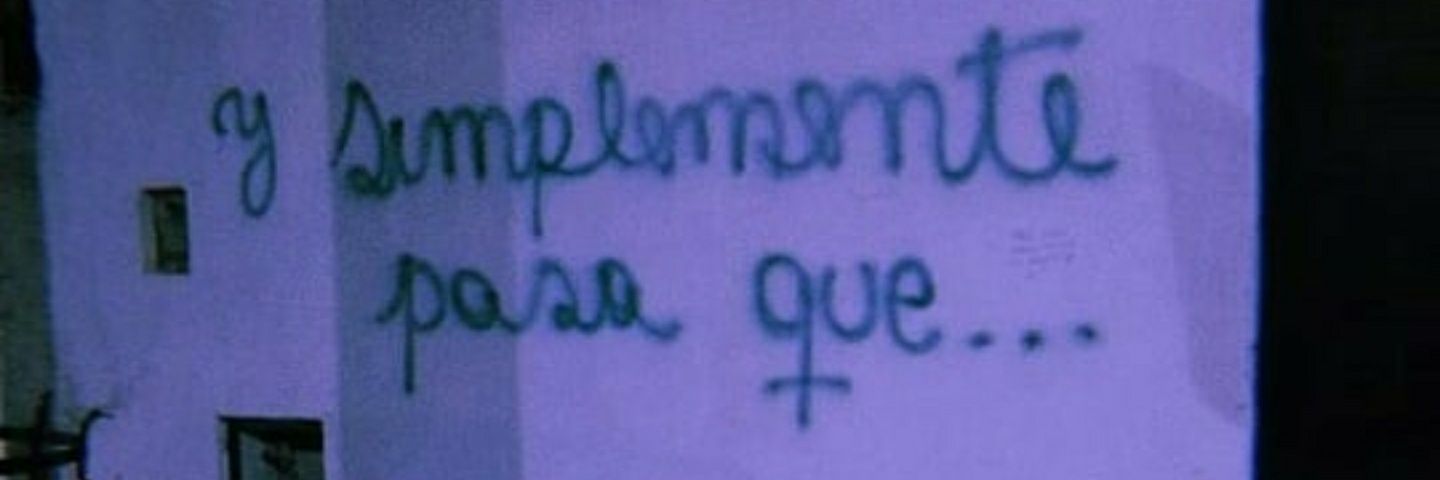 y simplemente
pasa que...